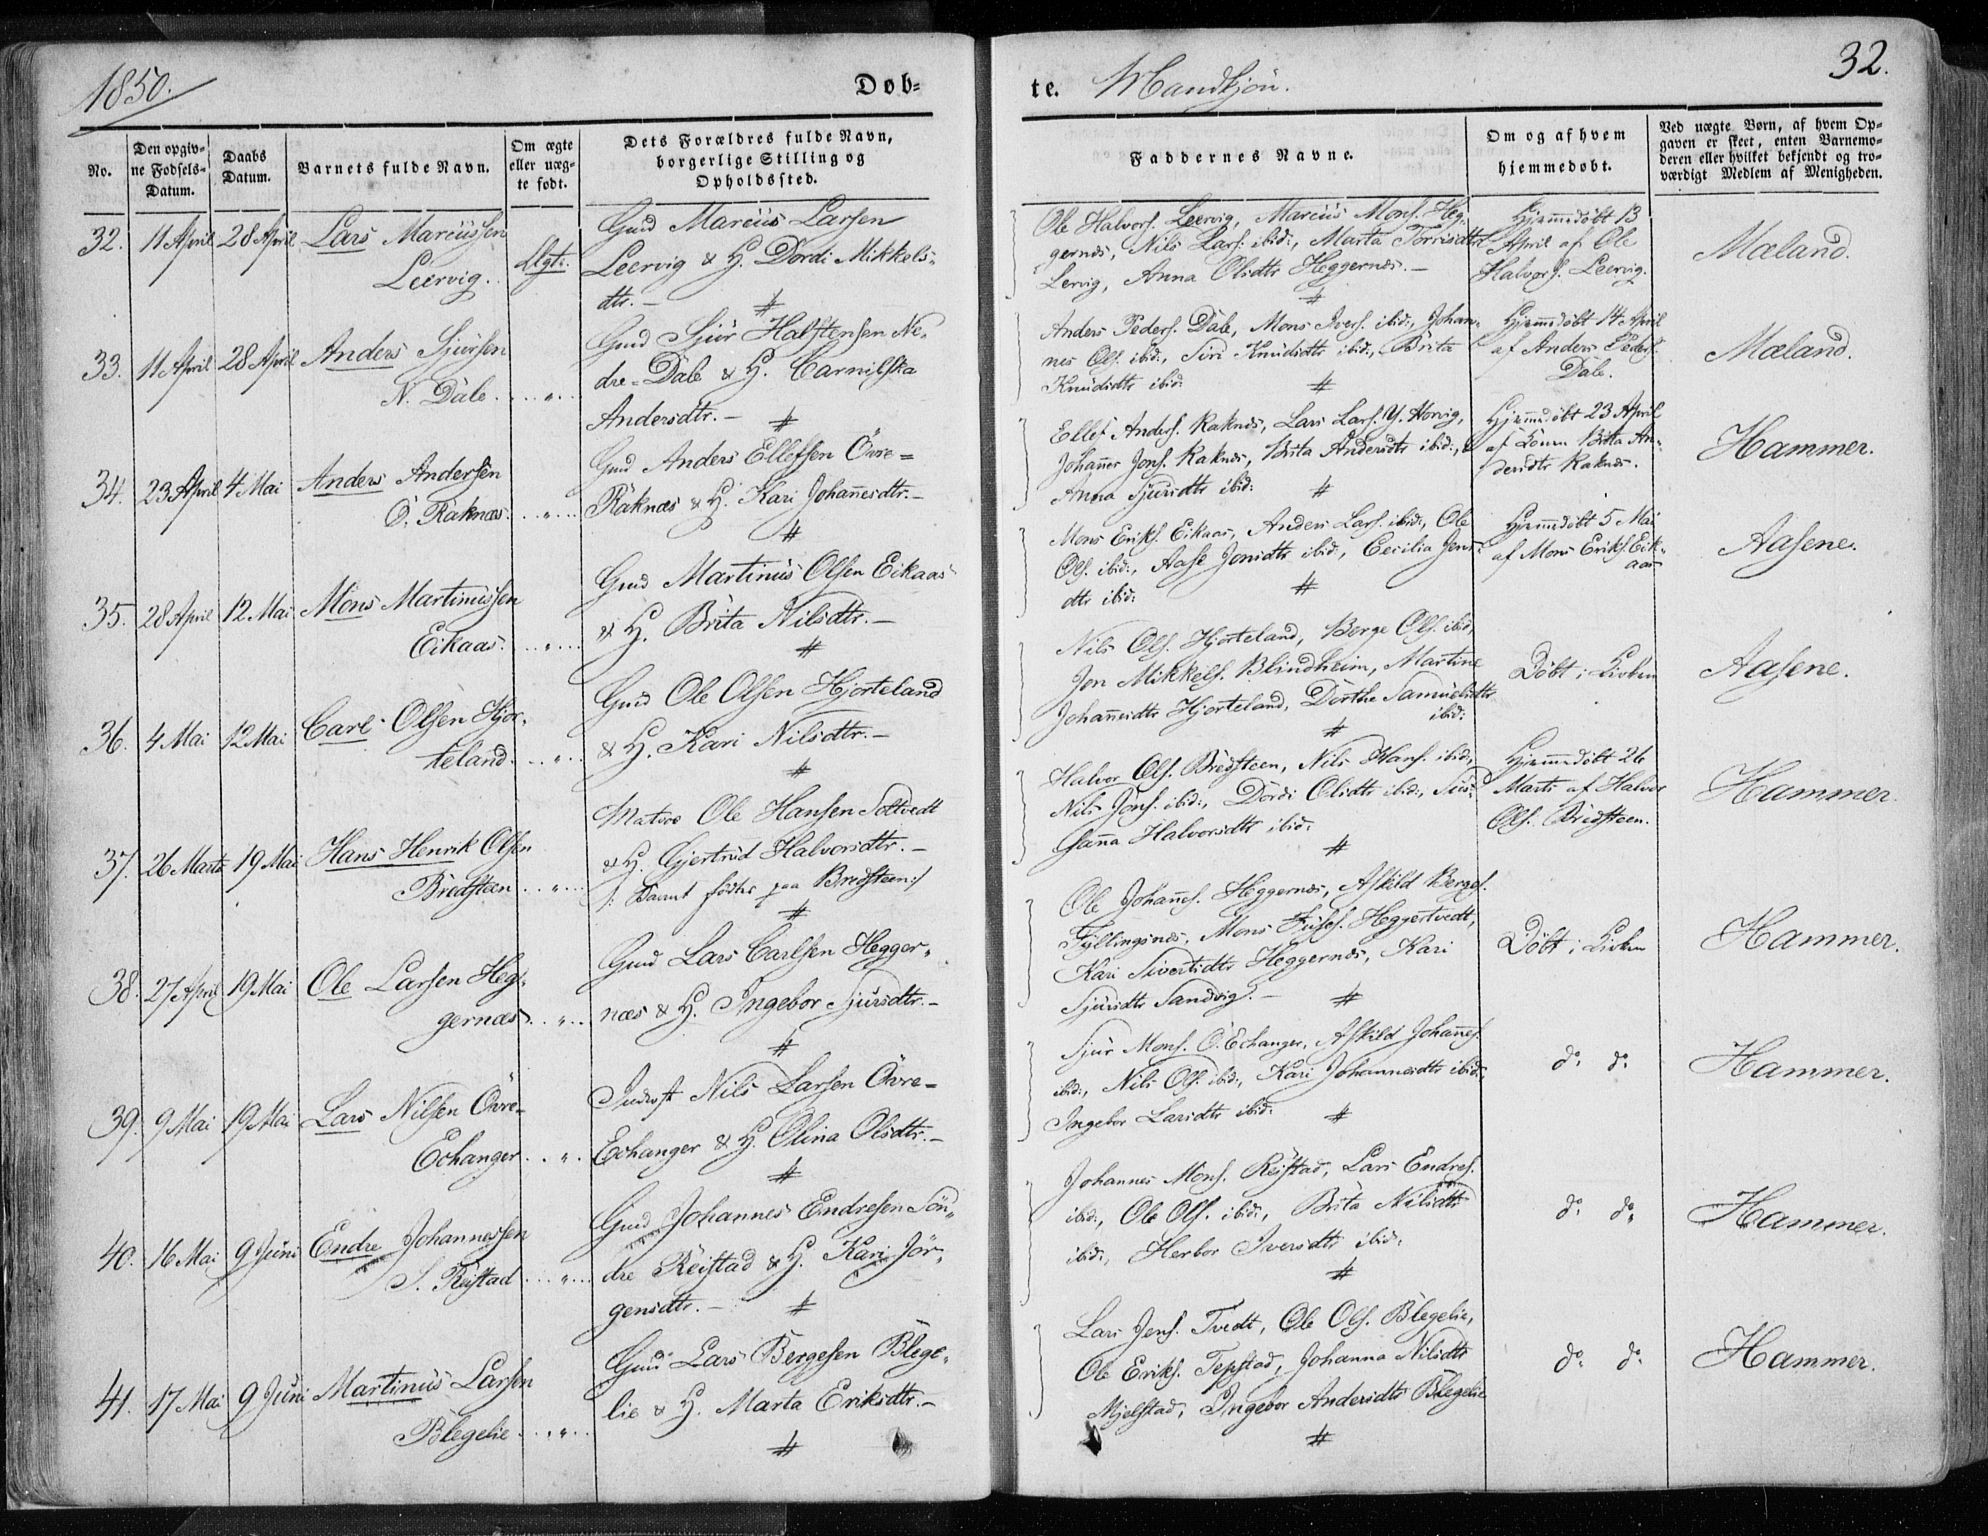 1850.
Døb-
te. Mandkjön.
32.
No.
Den opgiv-
ne Fødsels-
Datum.
Daabs
Datum.
Barnets fulde Navn.
Om ægte
eller uæg-
te født.
Dets Forældres fulde Navn,
borgerlige Stilling og
Opholdssted.
Faddernes Navne.
Om og af hvem
hjemmedøbt.
Ved uægte Børn, af hvem Op-
gaven er skeet, enten Barnemo-
deren eller hvilket bekjendt og tro-
værdigt Medlem af Menigheden.
32. 11 April 28 April Lars Mariussen
Leervig. Ægt.
Gmd Marius Larsen
Leervig & H. Dordi Mikkels-
dtr. -
Ole Halvors. Leervig, Marius Mons. Heg-
gernæs, Nils Lars. ibid:, Marta Torrisdtr
Lervig, Anna Olsdtr Heggernæs. -
Hjemmdöbt 13
April af Ole
Halvors. Leervig.
Mæland.
33. 11 April 28 April Anders Sjursen
N. Dale. . . " . .
Gmd Sjur Halstensen Ne-
dre-Dale & H.
Andersdtr. -
Anders Peders. Dale, Mons Ivers. ibid:, Johan-
nes Ols. ibid:, Siri Knudsdtr ibid:, Brita
Knudsdtr ibid:
Hjemmdöbt 14 April
af Anders Peders.
Dale.
Mæland.
34. 23 April 4 Mai Anders Andersen
Ö. Raknæs. . . " . .
Gmd Anders Ellefsen Övre-
Raknæs & H. Kari Johannesdtr. -
Ellef Anders. Raknæs, Lars Lars. Y. Horvig,
Johannes Jons. Raknæs, Brita Andersdtr ibid:,
Anna Sjursdtr ibid:
Hjemmdöbt 23 April
af Konen Brita An-
dersdtr Raknæs.
Hammer.
35. 28 April 12 Mai Mons Martinussen
Eikaas. . . " . .
Gmd Martinus Olsen Eikaas
& H. Brita Nilsdtr. -
Mons Eriks. Eikaas, Anders Lars. ibid:, Ole
Ols. ibid:, Aase Jonsdtr ibid:, Cecilia Jens-
dtr ibid:
Hjemmdöbt 5 Mai
af Mons Eriks. Eik-
aas
Aasene.
36. 4 Mai 12 Mai Carl Olsen Hjor-
teland. . . " . .
Gmd Ole Olsen Hjorteland
& H. Kari Nilsdtr. -
Nils Ols. Hjorteland, Berge Ols. ibid,
Jon Mikkels. Blindheim, Martine
Johannesdtr Hjorteland, Dorthe Samuelsdtr
ibid:
Döbt i Kirken
Aasene.
37. 26 Marts 19 Mai Hans Henrik Olsen
Bredsteen . . " . .
Matros Ole Hansen Toltvedt
& H. Gjertrud Halvorsdtr. -
/: Barnet födtes paa Bredsteen:/
Halvor Ols. Bredsteen, Nils Hans. ibid:,
Nils Jons. ibid:, Dordi Olsdtr ibid:, Su-
sanna Halvorsdtr ibid:
Hjemmdöbt 26
Marts af Halvor
Ols. Bredsteen.
Hammer.
38. 27 April 19 Mai Ole Larsen Heg-
gernæs. . . " . .
Gmd Lars Carlsen Hegger-
næs & H. Ingebor Sjursdtr. -
Ole Johanes. Heggernæs, Askild Berges.
Fyllingsnæs, Mons Heggertvedt,
Kari Sivertsdtr Heggernæs, Kari
Sjursdtr Sandvig. -
Döbt i Kirken
Hammer.
39. 9 Mai 19 Mai Lars Nilsen Övre-
Echanger. . . " .
Inderst Nils Larsen Övre-
Echanger & H. Olina Olsdtr. -
Sjur Mons. Ö. Echanger, Askild Johannes.
ibid:, Nils Ols. ibid:, Kari Johannesdtr ibid:,
Ingebor Larsdtr ibid:
do. do.
Hammer.
40. 16 Mai 9 Juni Endre Johannessen
S. Reistad . . . " . .
Gmd Johannes Endresen Sön-
dre Reistad & H. Kari Jör-
gensdtr. -
Johannes Mons. Reistad, Lars Endres.
ibid:, Ole Ols. ibid:, Brita Nilsdtr
ibid:, Herbor Iversdtr ibid:
do. do.
Hammer.
41. 17 Mai 9 Juni Martinus Larsen
Blegelie. . . " . .
Gmd Lars Bergesen Blege-
lie & H. Marta Eriksdtr. -
Lars Jens. Tvedt, Ole Ols. Blegelie,
Ole Eriks. Tepstad, Johanna Nilsdtr
Mjelstad, Ingebor Andersdtr Blegelie
do. do.
Hammer.